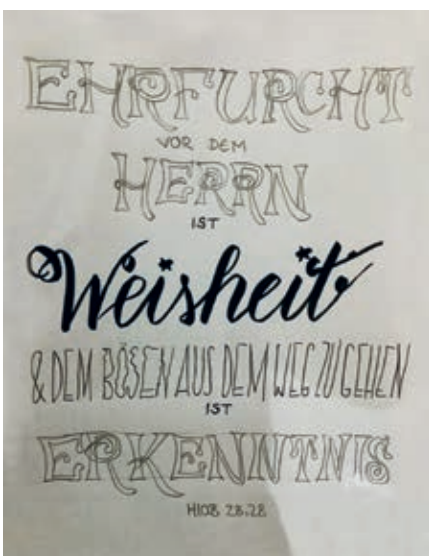 EHRFURCHT
VOR DEM
HERRN
IST
Weisheit
& DEM BÖSEN AUS DEM WEG ZU GEHEN
IST
ERKENNTNIS
HIOB 28.28